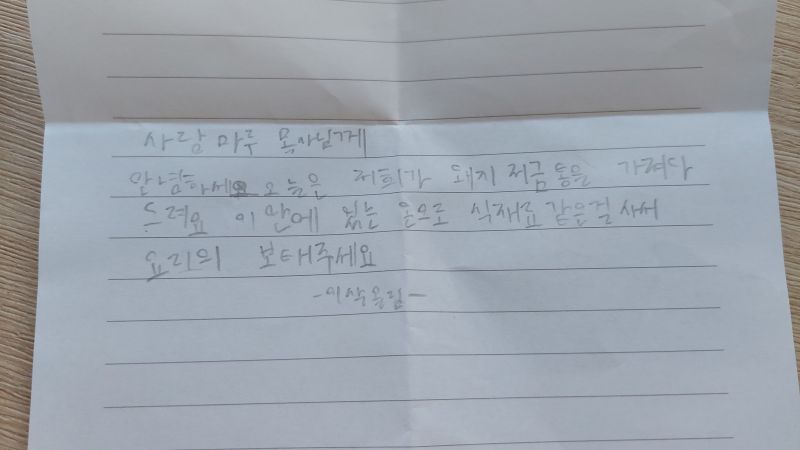 사람 마루 목사님께
안녕하세요 오늘은 저희가 돼지 저금통을 가져다
드려요 이 안에 있는 돈으로 식재료 같은걸 사서
요리의 보태주세요
-이삭올림-